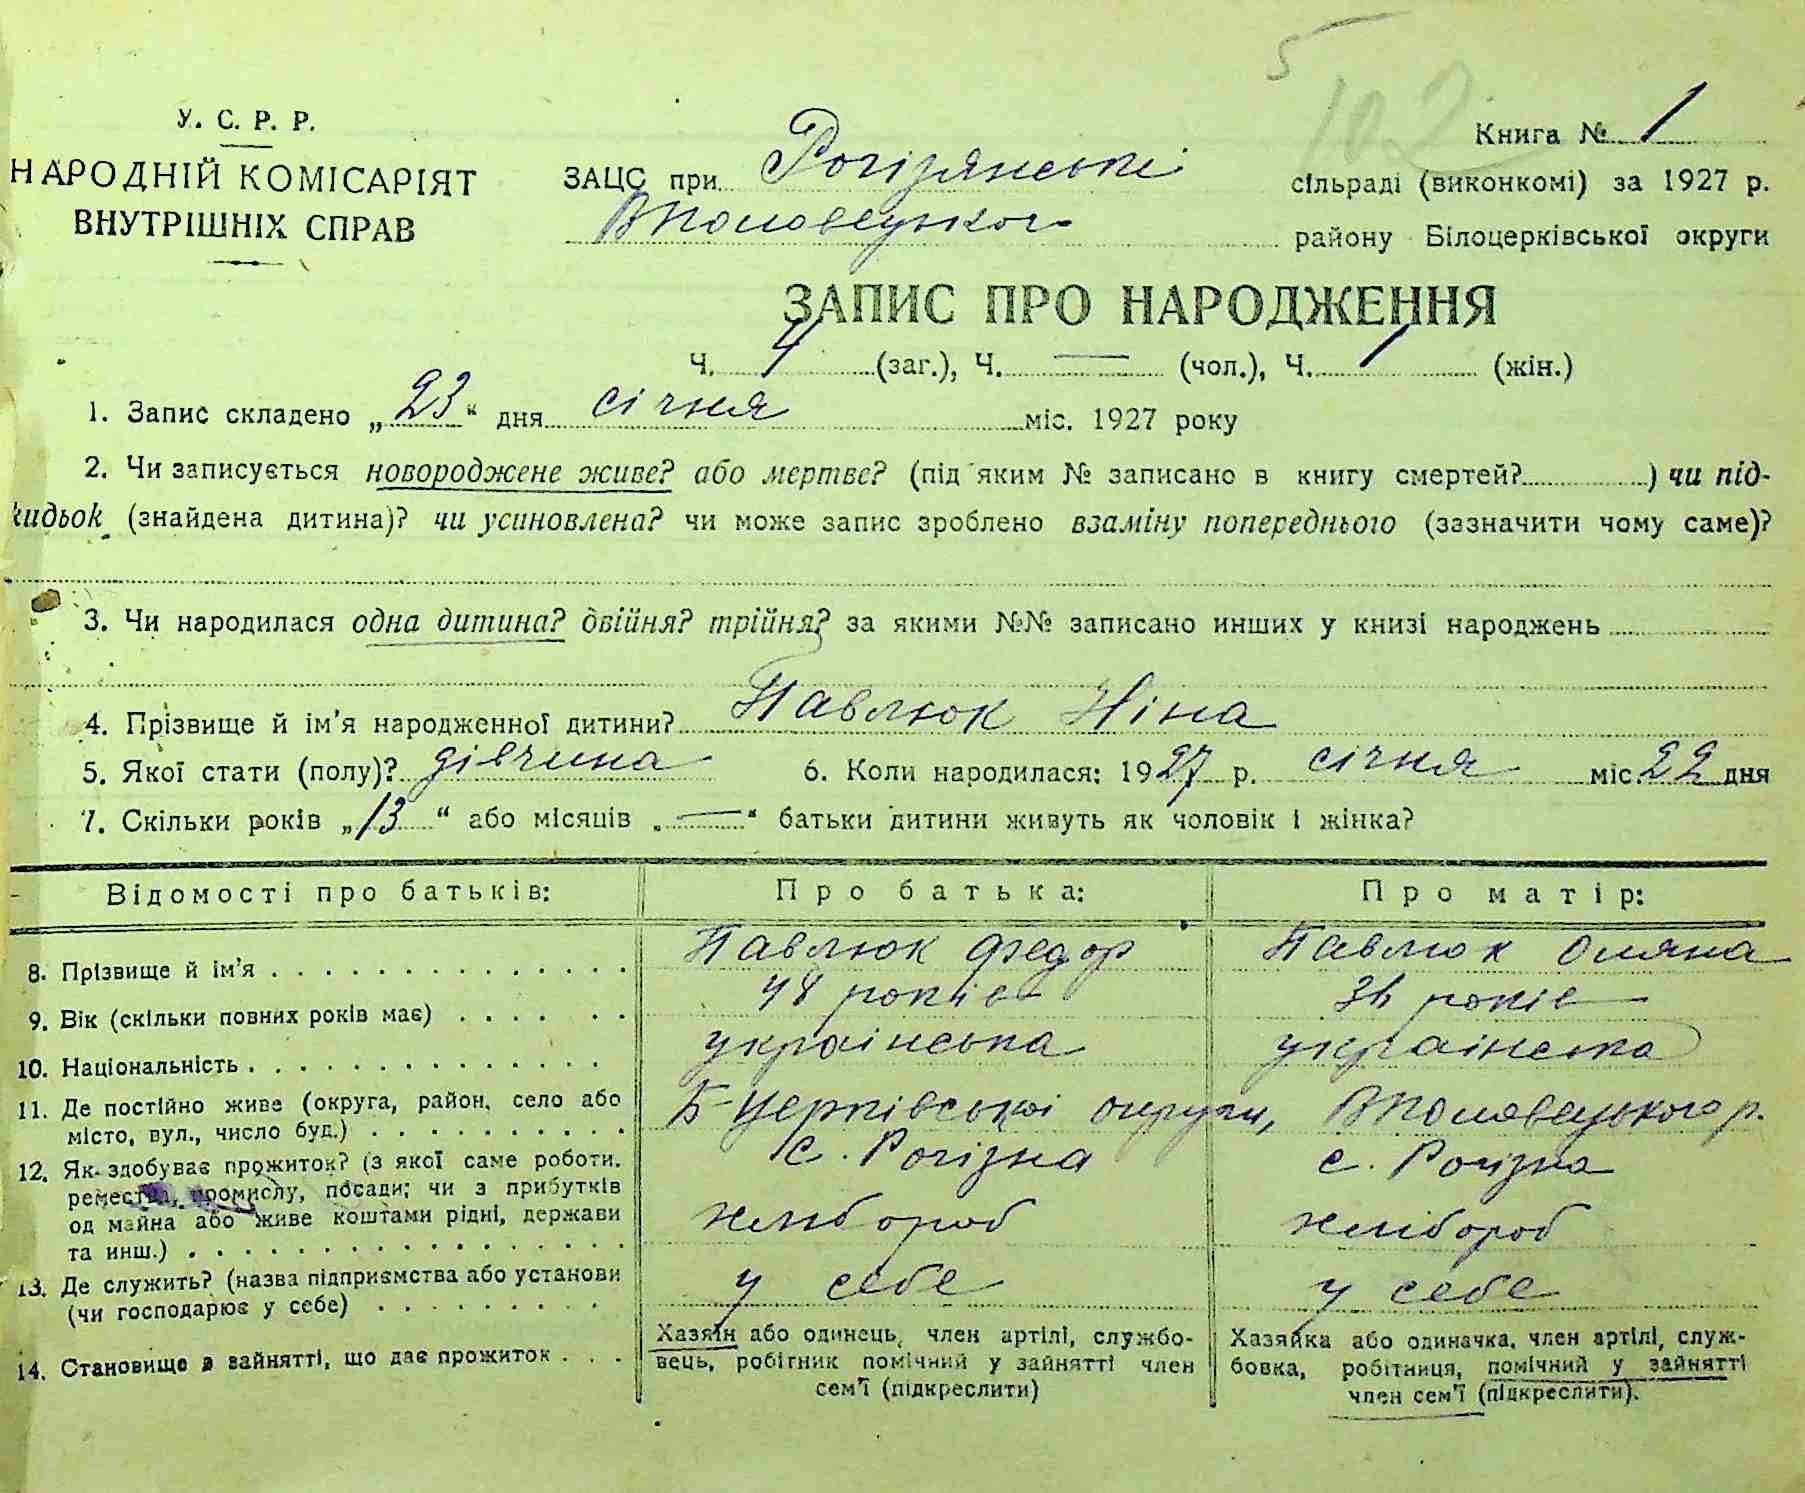 5
102
У. С. Р. Р.
НАРОДНІЙ КОМІСАРІЯТ
ВНУТРІШНІХ СПРАВ
Книга № 1
ЗАЦС при Рогізянські сільраді (виконкомі) за 1927 р.
ВПоловецького району Білоцерківської округи
ЗАПИС ПРО НАРОДЖЕННЯ
Ч. 4 (заг.), Ч. — (чол.), Ч. 1 (жін.)
1. Запис складено „23“ дня січня міс. 1927 року
2. Чи записується новороджене живе? або мертве? (під яким № записано в книгу смертей? ) чи під-
кидьок (знайдена дитина)? чи усиновлена? чи може запис зроблено взаміну попереднього (зазначити чому саме)?
3. Чи народилася одна дитина? двійня? трійня? за якими №№ записано инших у книзі народжень
4. Прізвище й ім'я народженної дитини? Павлюк Ніна
5. Якої стати (полу)? дівчина 6. Коли народилася: 1927 р. січня міс. 22 дня
7. Скільки років „13“ або місяців „—“ батьки дитини живуть як чоловік і жінка?
Відомості про батьків: Про батька: Про матір:
8. Прізвище й ім'я Павлюк Федор Павлюк Оляна
9. Вік (скільки повних років має) 48 років років
10. Національність українська українська
11. Де постійно живе (округа, район, село або
місто, вул., число буд.) Б-Церківської округи, ВПоловецького р.
с. Рогізна с. Рогізна
12. Як здобуває прожиток? (з якої саме роботи,
ремества, промислу, посади; чи з прибутків
од майна або живе коштами рідні, держави
та инш.) хлібороб хлібороб
13. Де служить? (назва підприємства або установи
(чи господарює у себе) у себе у себе
14. Становище в зайнятті, що дає прожиток
Хазяїн або одинець, член артілі, службо-
вець, робітник помічний у зайнятті член
сем'ї (підкреслити)
Хазяйка або одиначка, член артілі, служ-
бовка, робітниця, помічний у зайнятті
член сем'ї (підкреслити).